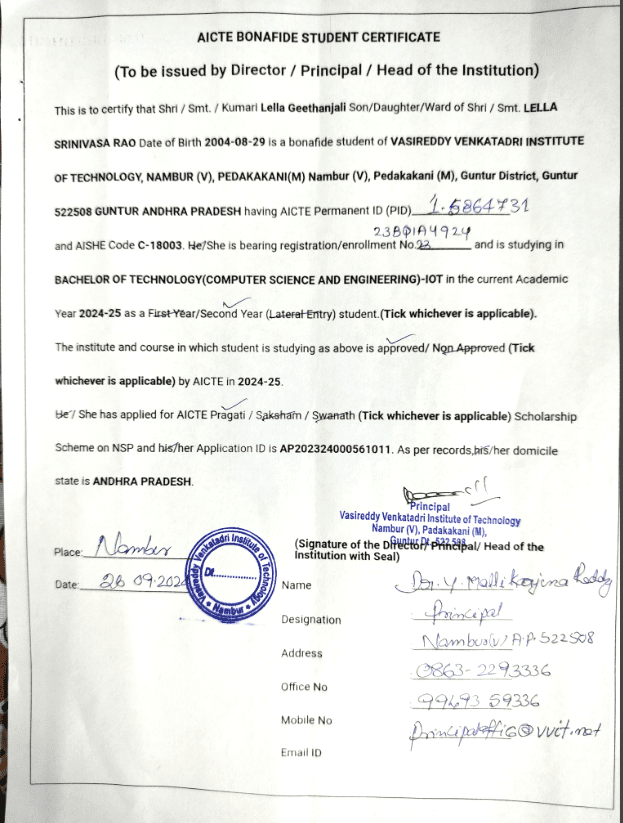 AICTE BONAFIDE STUDENT CERTIFICATE
(To be issued by Director / Principal / Head of the Institution)
This is to certify that Shri / Smt. / Kumari Lella Geethanjali Son/Daughter/Ward of Shri / Smt. LELLA
SRINIVASA RAO Date of Birth 2004-08-29 is a bonafide student of VASIREDDY VENKATADRI INSTITUTE
OF TECHNOLOGY, NAMBUR (V), PEDAKAKANI(M) Nambur (V), Pedakakani (M), Guntur District, Guntur
522508 GUNTUR ANDHRA PRADESH having AICTE Permanent ID (PID) 1-5864731
23BQ1A4924
and AISHE Code C-18003. He/She is bearing registration/enrollment No.23 and is studying in
BACHELOR OF TECHNOLOGY(COMPUTER SCIENCE AND ENGINEERING)-IOT in the current Academic
Year 2024-25 as a First Year/Second Year (Lateral Entry) student.(Tick whichever is applicable).
The institute and course in which student is studying as above is approved/ Non Approved (Tick
whichever is applicable) by AICTE in 2024-25.
He / She has applied for AICTE Pragati / Saksham / Swanath (Tick whichever is applicable) Scholarship
Scheme on NSP and his/her Application ID is AP202324000561011. As per records,his/her domicile
state is ANDHRA PRADESH.
Principal
Vasireddy Venkatadri Institute of Technology
Nambur (V), Padakakani (M),
Guntur Dt - 522 508
(Signature of the Director/ Principal/ Head of the
Institution with Seal)
Place: Nambur
Date: 26 09.2024
Vasireddy Venkatadri Institute of Technology
Dt.
Nambur
Name Dr. Y. Mallikarjuna Reddy
Designation Principal
Address Nambur(v) A.P. 522508
Office No 0863-2293336
Mobile No 99493 59336
Email ID principaloffic@vvit.net